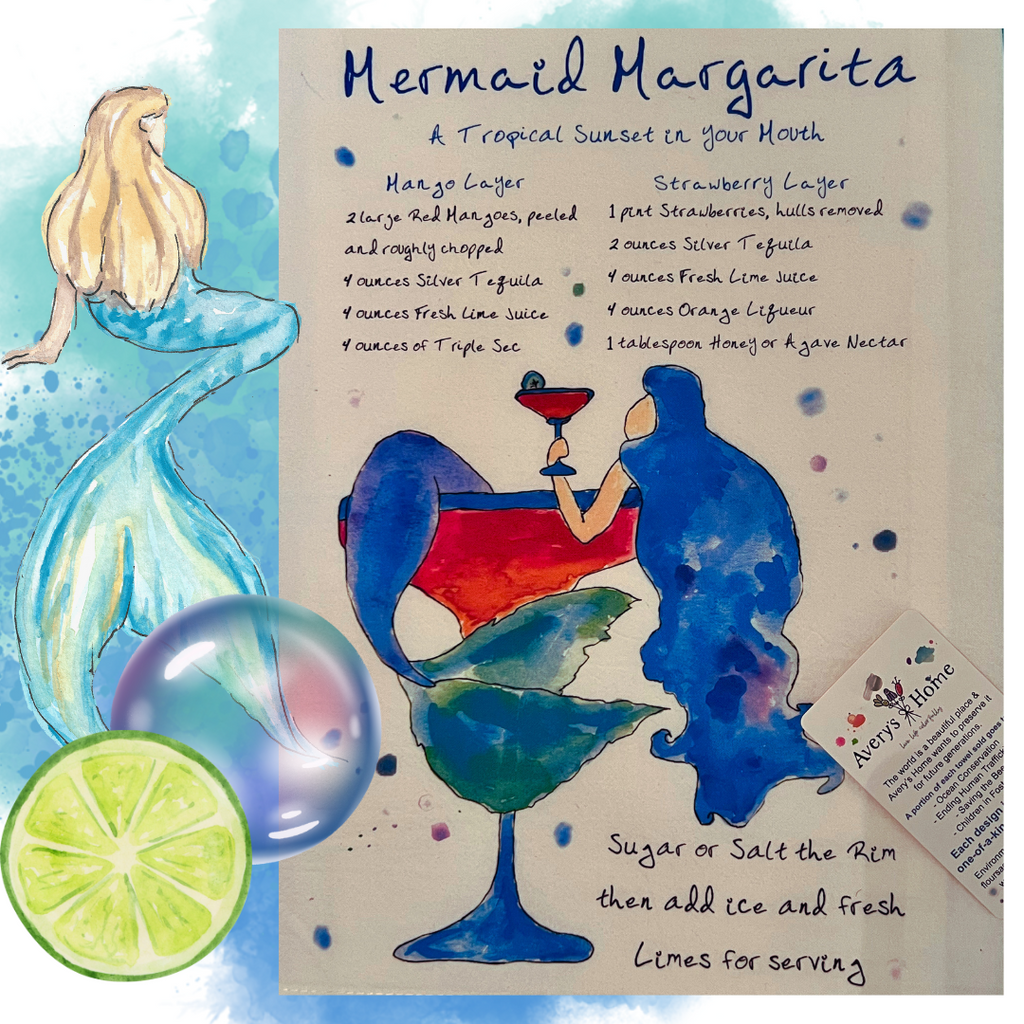 Mermaid Margarita
A Tropical Sunset in your Mouth
Mango Layer
2 large Red Mangoes, peeled
and roughly chopped
4 ounces Silver Tequila
4 ounces Fresh Lime Juice
4 ounces of Triple Sec
Strawberry Layer
1 pint Strawberries, hulls removed
2 ounces Silver Tequila
4 ounces Fresh Lime Juice
4 ounces Orange Liqueur
1 tablespoon Honey or Agave Nectar
Sugar or Salt the Rim
then add ice and fresh
Limes for serving
Avery's Home
Live life colorfully
The world is a beautiful place &
Avery's Home wants to preserve it
for future generations.
A portion of each towel sold goes
- Ocean Conservation
- Ending Human
- Saving the
- Children in
Each design
one-of-a-kin